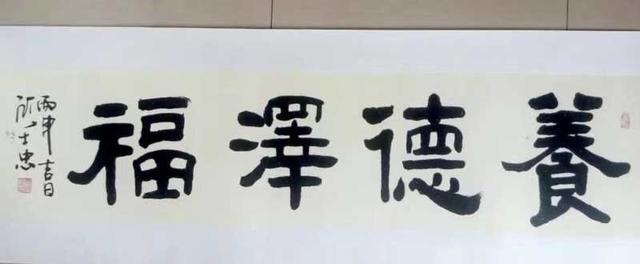 養德澤福
丙申吉日
士忠